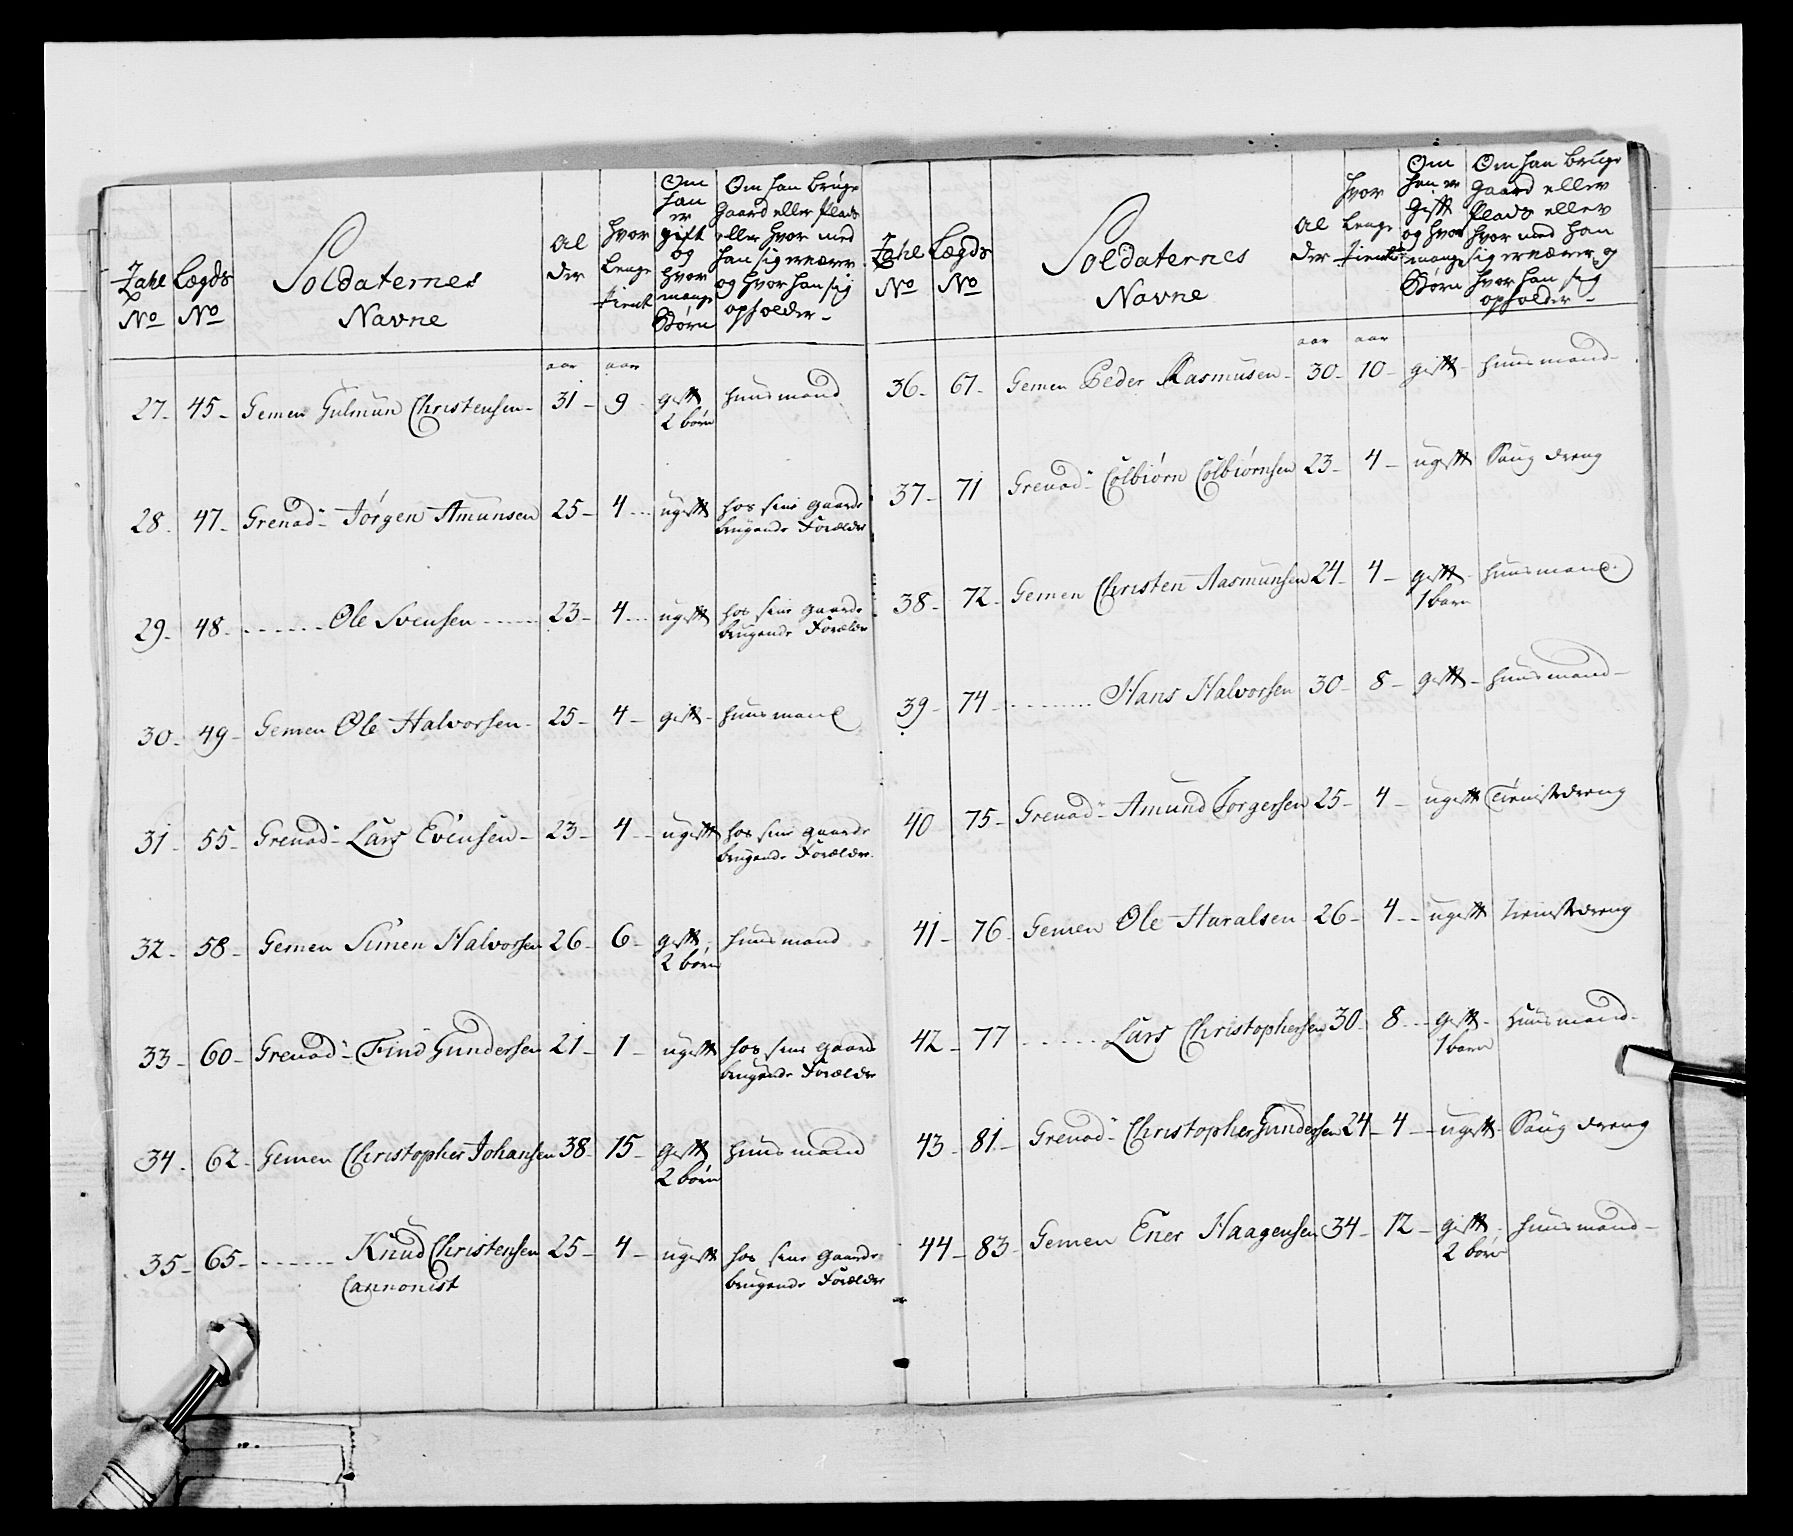 Tahl Lægds Soldaternes Al Hvor Om Om han bruge
No No Navne der lenge han Gaard eller Plads
tient er eller hvor med
gift han sig ernærer
og og hvor han sig
hvor opholder
mange
Børn
aar aar
27 45 Gemen Gulmun Christensen 31 9 gift huusmand
2 børn
28 47 Grenad Jørgen Amunsen 25 4 ugift hos sine gaard
brugende Forældre
29 48 Ole Svensen 23 4 ugift hos sine gaard
brugende Forældre
30 49 Gemen Ole Halvorsen 25 4 gift huusmand
31 55 Grenad Lars Evensen 23 4 ugift hos sine gaard
brugende Forældre
32 58 Gemen Simen Halvorsen 26 6 gift huusmand
2 børn
33 60 Grenad Find Gundersen 21 1 ugift hos sine gaard
brugende Forældre
34 62 Gemen Christopher Johansen 38 15 gift huusmand
2 børn
35 65 Knud Christensen 25 4 ugift hos sine gaard
Cannonist brugende Forældre
Tahl Lægds Soldaternes Al Hvor Om Om han bruge
No No Navne der lenge han er Gaard eller
tient gift Plads eller
og hvor hvor med han
mange sig ernærer og
Børn hvor han sig
opholder
aar aar
36 67 Gemen Peder Rasmusen 30 10 gift huusmand
37 71 Grenad Colbiørn Colbiørnsen 23 4 ugift Saug dreng
38 72 Gemen Christen Aasmunsen 24 4 gift huusmand
1 barn
39 74 Hans Halvorsen 30 8 gift huusmand
40 75 Grenad Amund Torgersen 25 4 ugift Tienistdreng
41 76 Gemen Ole Haralsen 26 4 ugift tienistdreng
42 77 Lars Christophersen 30 8 gift huusmand
1 barn
43 81 Grenad Christopher Gundersen 24 4 ugift Saug dreng
44 83 Gemen Ener Haagensen 34 12 gift huusmand
2 børn